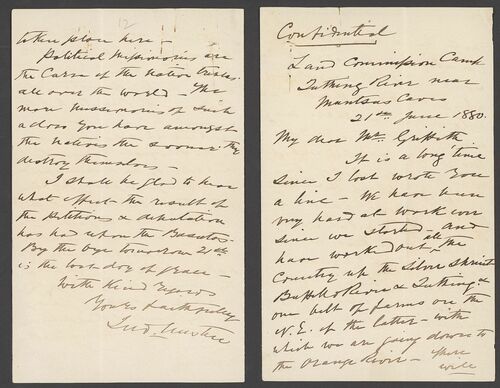 Confidential
Land Commission Camp
River near
Caves
21st June 1880.
My dear Mr Griffith
It is a long time
since I last wrote you
a line - We have been
very hard at work ever
since we started - and
have worked out all the
Country up the
Buffalo River &
one belt of farms on the
N.E. of the latter - with
which we are going down to
the Orange River - there
will
12
take place here -
Political Missionaries are
the Curse of the nation
all over the world - The
more Missionaries of such
a class you have amongst
the natives the sooner they
destroy themselves -
I shall be glad to hear
what effect the result of
the petitions & deputation
has had upon the Basutos.
By the bye tomorrow 21st
is the last day of grace -
With Kind Regards
Yours faithfully